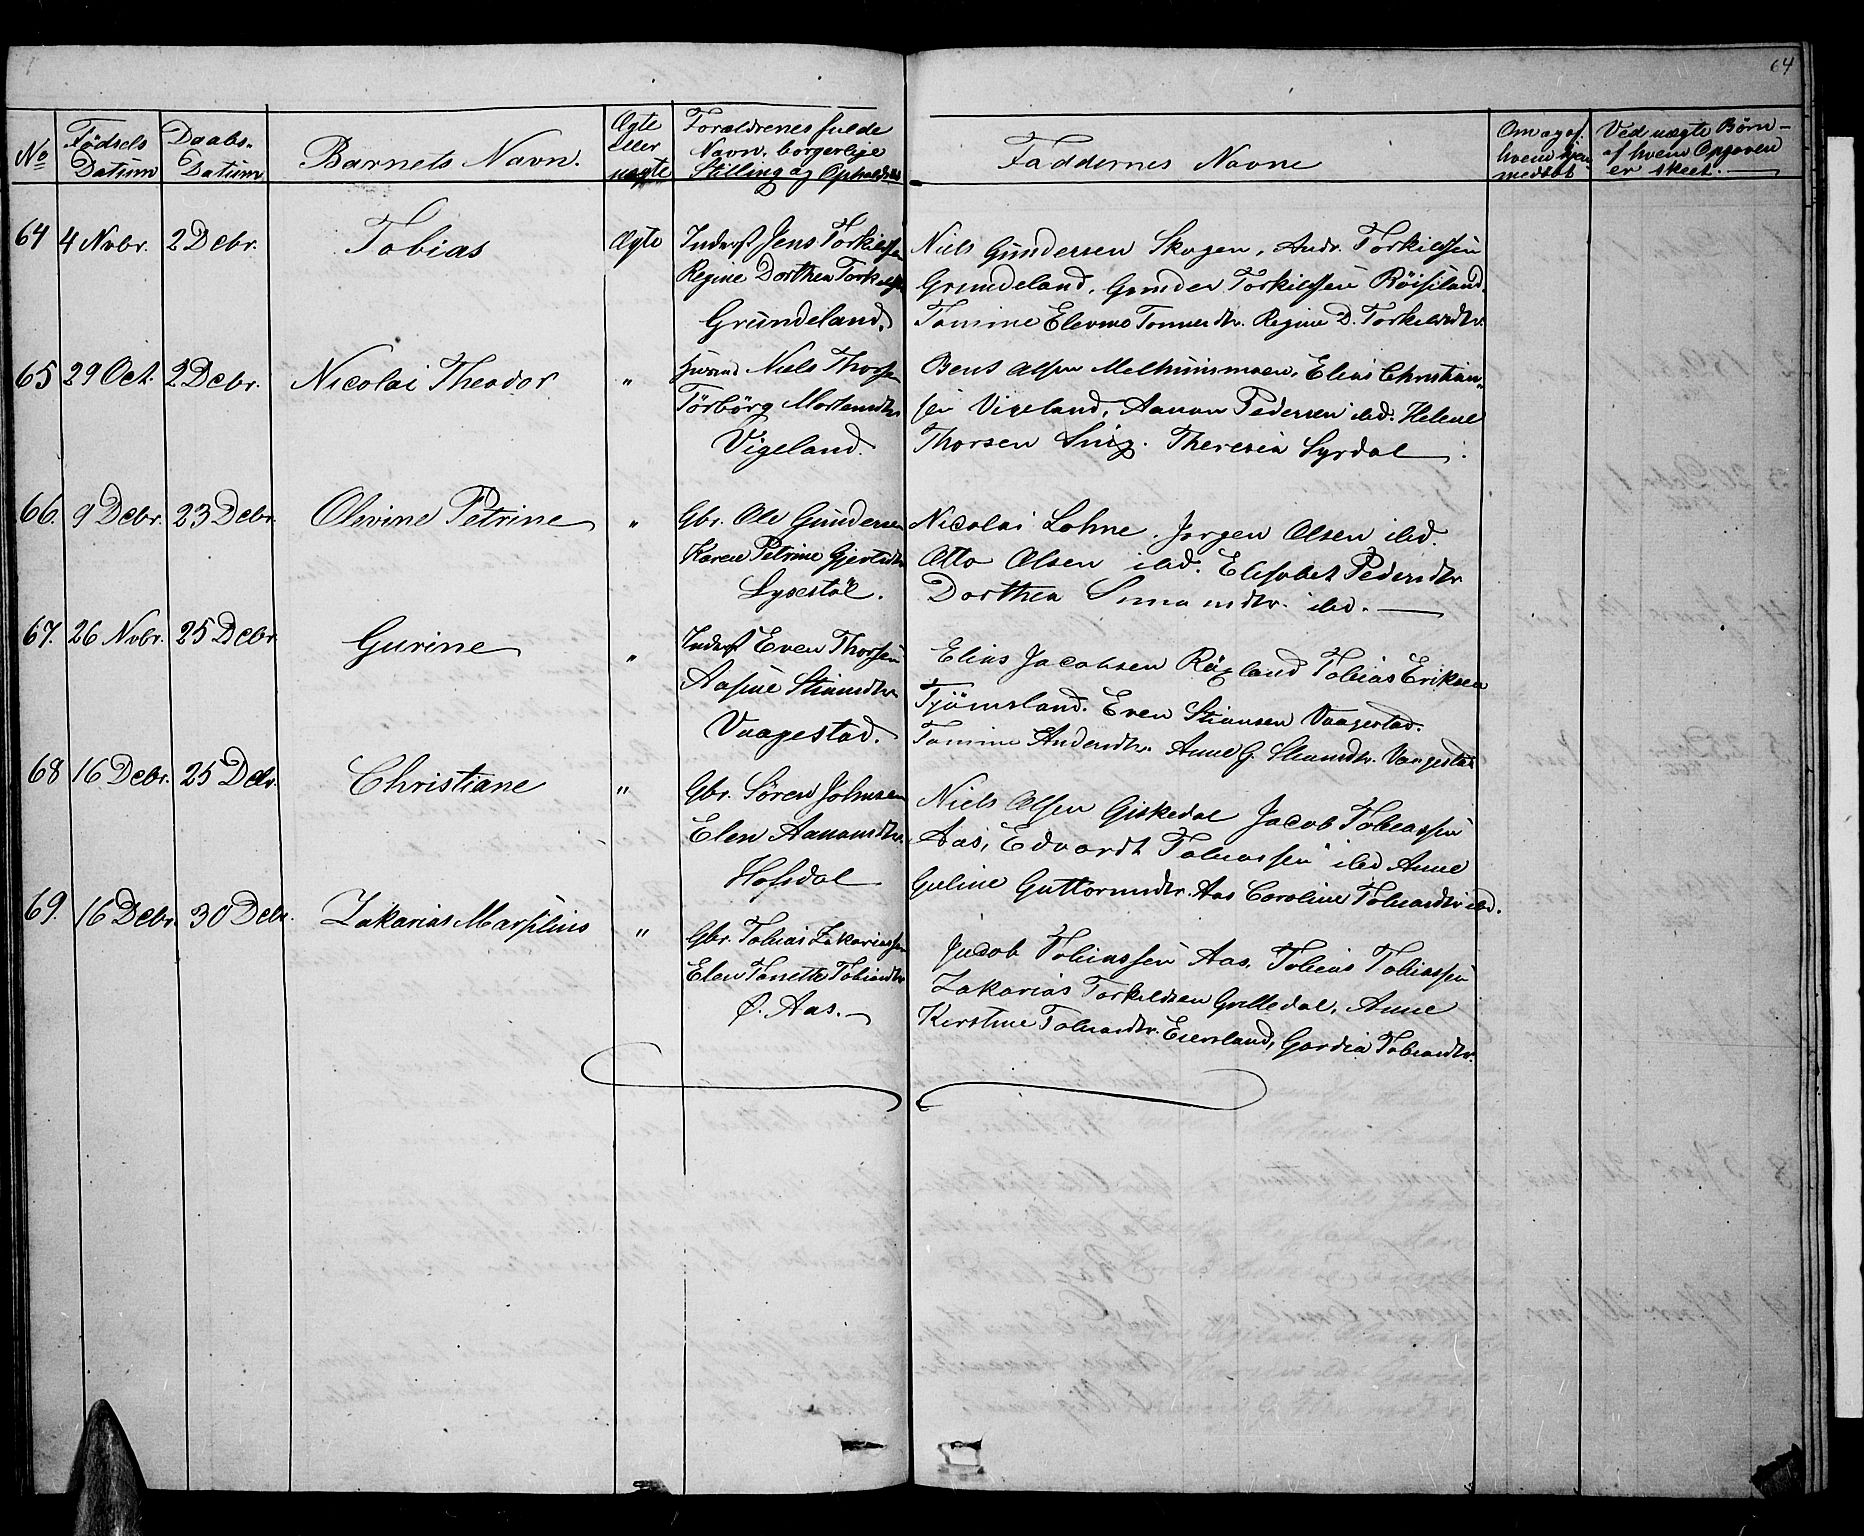 64
No
Fødsels Datum
Daabs- Datum
Barnets Navn.
Ægte eller uægte
Forældrenes fulde
Navn, borgerlige
Stilling og Opholdssted
Faddernes Navne
Om og af
hvem hjem
medsat
Ved uægte Børn-
af hvem Opgaven
er skeet.
64 4 Novbr. 2 Debr. Tobias Ægte
Inderst Jens Torkilssen
Regine Dorthea Torkels
Grundeland.
Niels Gundersen Skogen, Andr. Torkilssen
Grundeland, Gunder Torkilssen Röisland.
Tomine Elevine Tonnesdtr. Regine D. Torkelsdtr.
65 29 Oct. 2 Debr. Nicolai Theodor "
Niels Thorsen
Torborg Mortensdtr
Vigeland.
Bent Olsen Melhusmoen, Elias Christian-
sen Vigeland, Aanon Pedersen ibd. Helene
Thorsen Theresia Syrdal
66. 9 Debr. 23 Debr. Olevine Petrine "
Gbr. Ole Gundersen
Karen Petrine Gjertsdtr
Lysestöl.
Nicolai Lohne. Jørgen Olsen ibd.
Otto Olsen ibd. Elisabet Pedersdtr
Dorthea Simonsdtr. ibd.
67. 26 Novbr. 25 Debr. Gurine "
Inderst Even Thorsen
Aasine Stiansdtr
Vaagestad.
Elias Jacobsen Röyland Tobias Eriksen
Tjömsland. Even Stiansen Vaagestad.
Tomine Andersdtr. Anne G. Stiansdtr. Vaagestad
68 16 Debr. 25 Debr. Christiane "
Gbr. Sören Johnsen
Elen Aanonsdtr.
Hofsdal
Niels Olsen Giskedal Jacob Tobiassen
Aas, Edvardt Tobiassen ibd Anne
Guline Guttormsdtr. Aas Caroline Tobiasdtr ibd.
69. 16 Debr. 30 Debr. Zakarias Marsilius "
Gbr. Tobias Zakariassen
Elen Tonette Tobiasdtr
Ø. Aas.
Jacob Tobiassen Aas, Tobias Tobiassen
Zakarias Torkildsen Grilledal, Anne
Kirstine Tobiasdtr. Eiersland, Gordia Tobiasdtr.